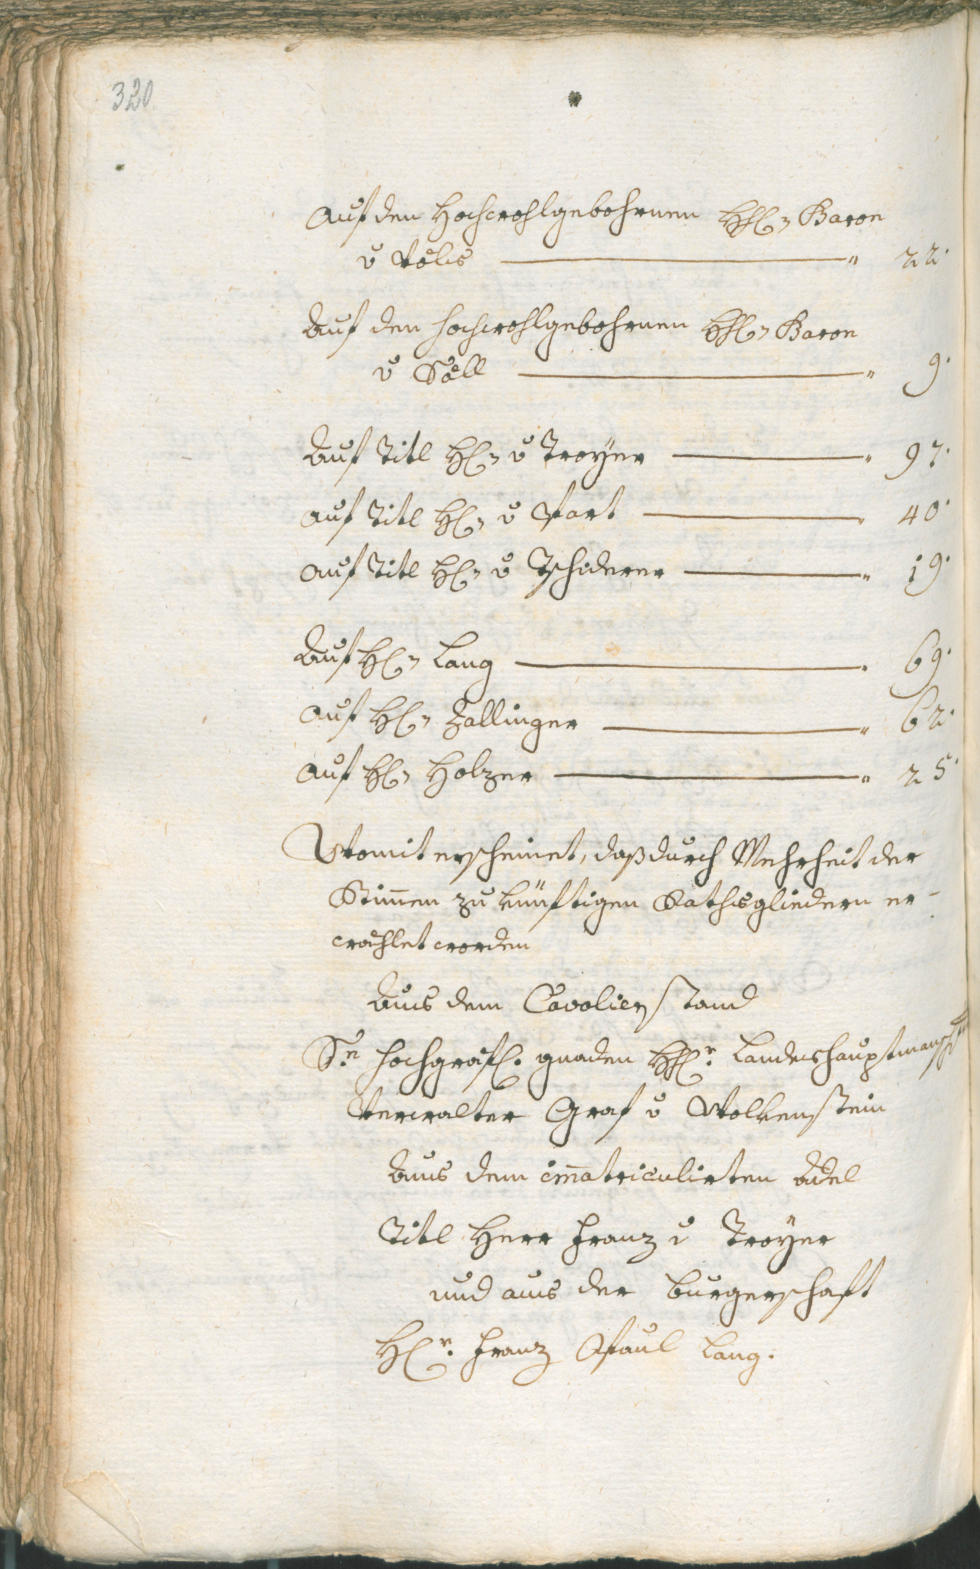 320
Auf den Hochwohlgebohrnen HH. Baron
v Völs — 22.
Auf den hochwohlgebohrnen HH. Baron
v Söll — 9.
Auf Titl H. v Troÿer — 97.
auf Titl H. v Hart — 40.
auf Titl H. v Tschiderer — 19.
Auf H. Lang — 69.
auf H. Zallinger — 62.
auf H. Holzer — 25.
Womit erscheinet, daß durch Mehrheit der
Stim̄en zu künftigen Rathsgliedern er-
wöhlet worden
Aus dem Cavalier stand
Se hochgräfl. gnaden HHr. Landeshauptmanschafts
Verwalter Graf v Wolkenstein
Aus dem im̄atriculirten Adel
Titl Herr Franz v Troÿer
und aus der burgerschaft
Hr. Franz Paul Lang.